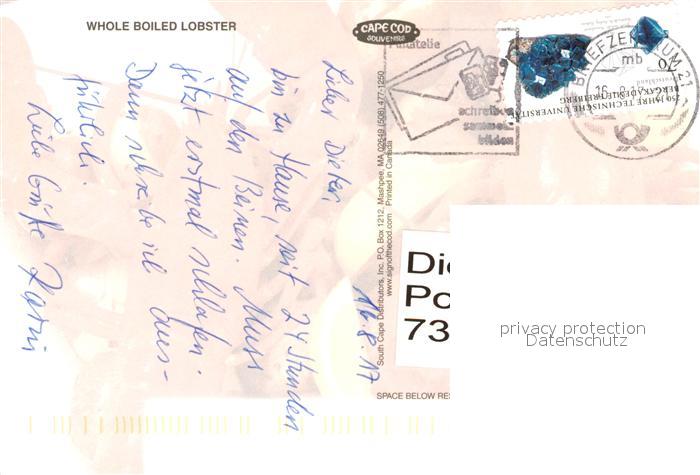 WHOLE BOILED LOBSTER
CAPE COD
SOUVENIRS
16.8.17
Lieber Dieter,
bin zu Hause seit 24 Stunden
auf den Beinen. Muss
jetzt erstmal schlafen.
Dann schreibe ich aus-
führlich
Liebe Grüße Karin
South Cape Distributors, Inc. P.O. Box 1212, Mashpee, MA 02649 (508) 477-1250
www.signofthecod.com Printed in Canada
SPACE BELOW RES
Philatelie
schreiben
sammeln
bilden
BRIEFZENTRUM 21
mb
250 JAHRE TECHNISCHE UNIVERSITÄT
BERGAKADEMIE FREIBERG
Deutschland
70
Die
Po
73
privacy protection
Datenschutz